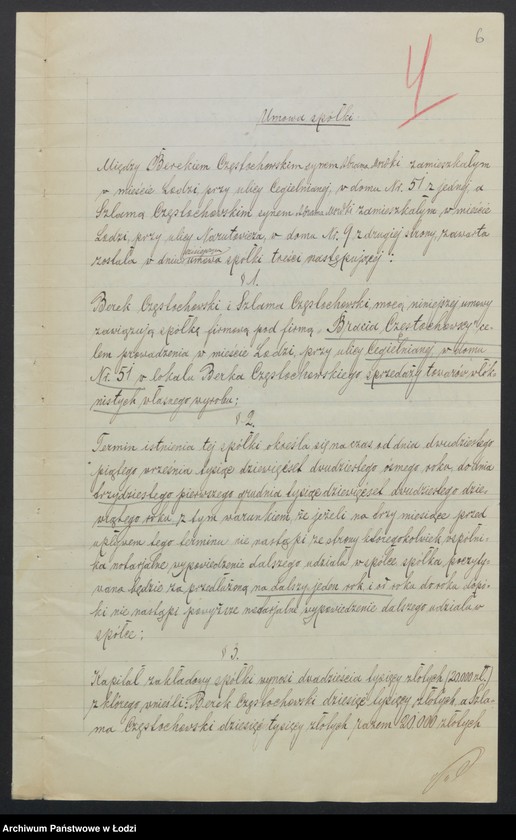 6
4
Umowa spółki
Między Berekiem Częstochowskim synem zamieszkałym
w mieście Łodzi przy ulicy Cegielnianej, w domu Nr. 51 z jednej, a
Szlamą Częstochowskim synem zamieszkałym w mieście
Łodzi, przy ulicy Narutowicza, w domu Nr. 9 z drugiej strony, zawarta
została w dniu umowa spółki treści następującej:
§ 1.
Berek Częstochowski i Szlama Częstochowski mocą niniejszej umowy
zawiązują spółkę firmową pod firmą „Bracia Częstochowscy" ce-
lem prowadzenia w mieście Łodzi, przy ulicy Cegielnianej, w domu
Nr. 51 w lokalu Berka Częstochowskiego sprzedaży towarów włók-
nistych własnego wyrobu;
§ 2.
Termin istnienia tej spółki określa się na czas od dnia dwudziestego
piątego września tysiąc dziewięćset dwudziestego ósmego roku, do dnia
trzydziestego pierwszego grudnia tysiąc dziewięćset dwudziestego dzie-
wiątego roku, z tym warunkiem, że jeżeli na trzy miesiące przed
upływem tego terminu nie nastąpi ze strony któregokolwiek wspólni-
ka notarjalne wypowiedzenie dalszego udziału w spółce spółka poczyty-
wana będzie za przedłużoną na dalszy jeden rok i od roku do roku dopó-
ki nie nastąpi powyższe notarjalne wypowiedzenie dalszego udziału w
spółce;
§ 3.
Kapitał zakładowy spółki wynosi dwadzieścia tysięcy złotych (20.000 zł.)
z którego wnieśli: Berek Częstochowski dziesięć tysięcy złotych, a Szla-
ma Częstochowski dziesięć tysięcy złotych razem 20.000 złotych
Archiwum Państwowe w Łodzi